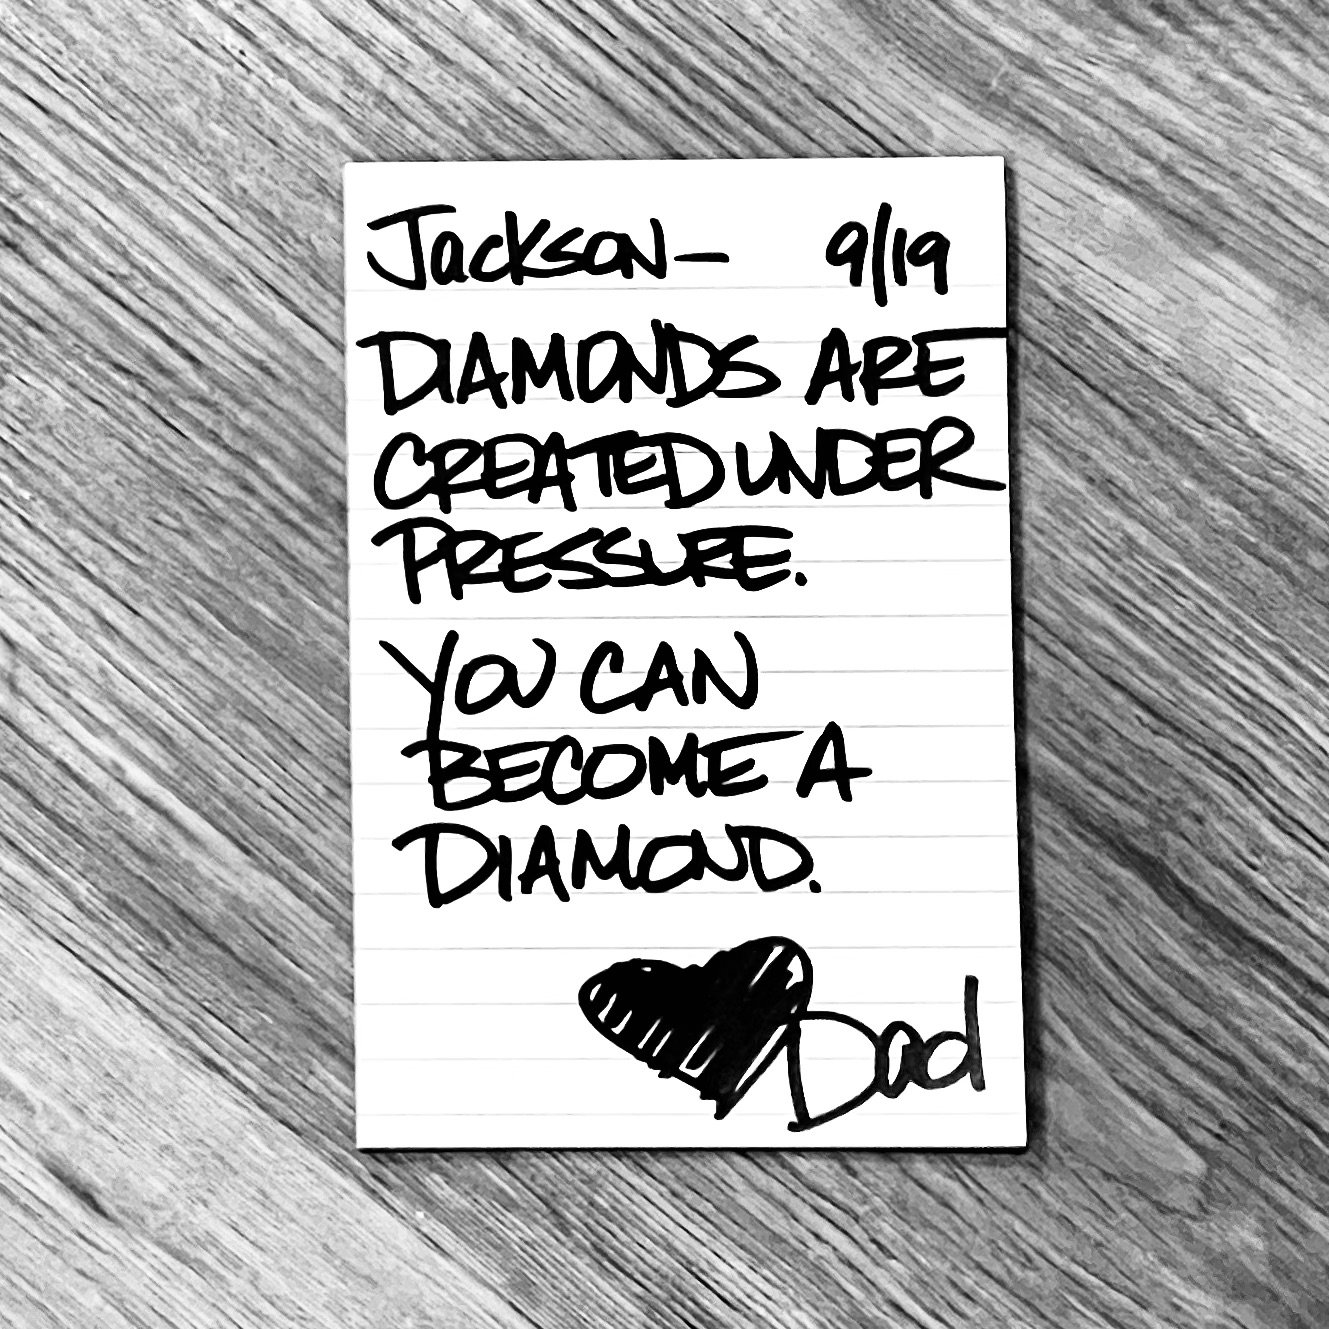 Jackson— 9/19
DIAMONDS ARE
CREATED UNDER
PRESSURE.
YOU CAN
BECOME A
DIAMOND.
Dad